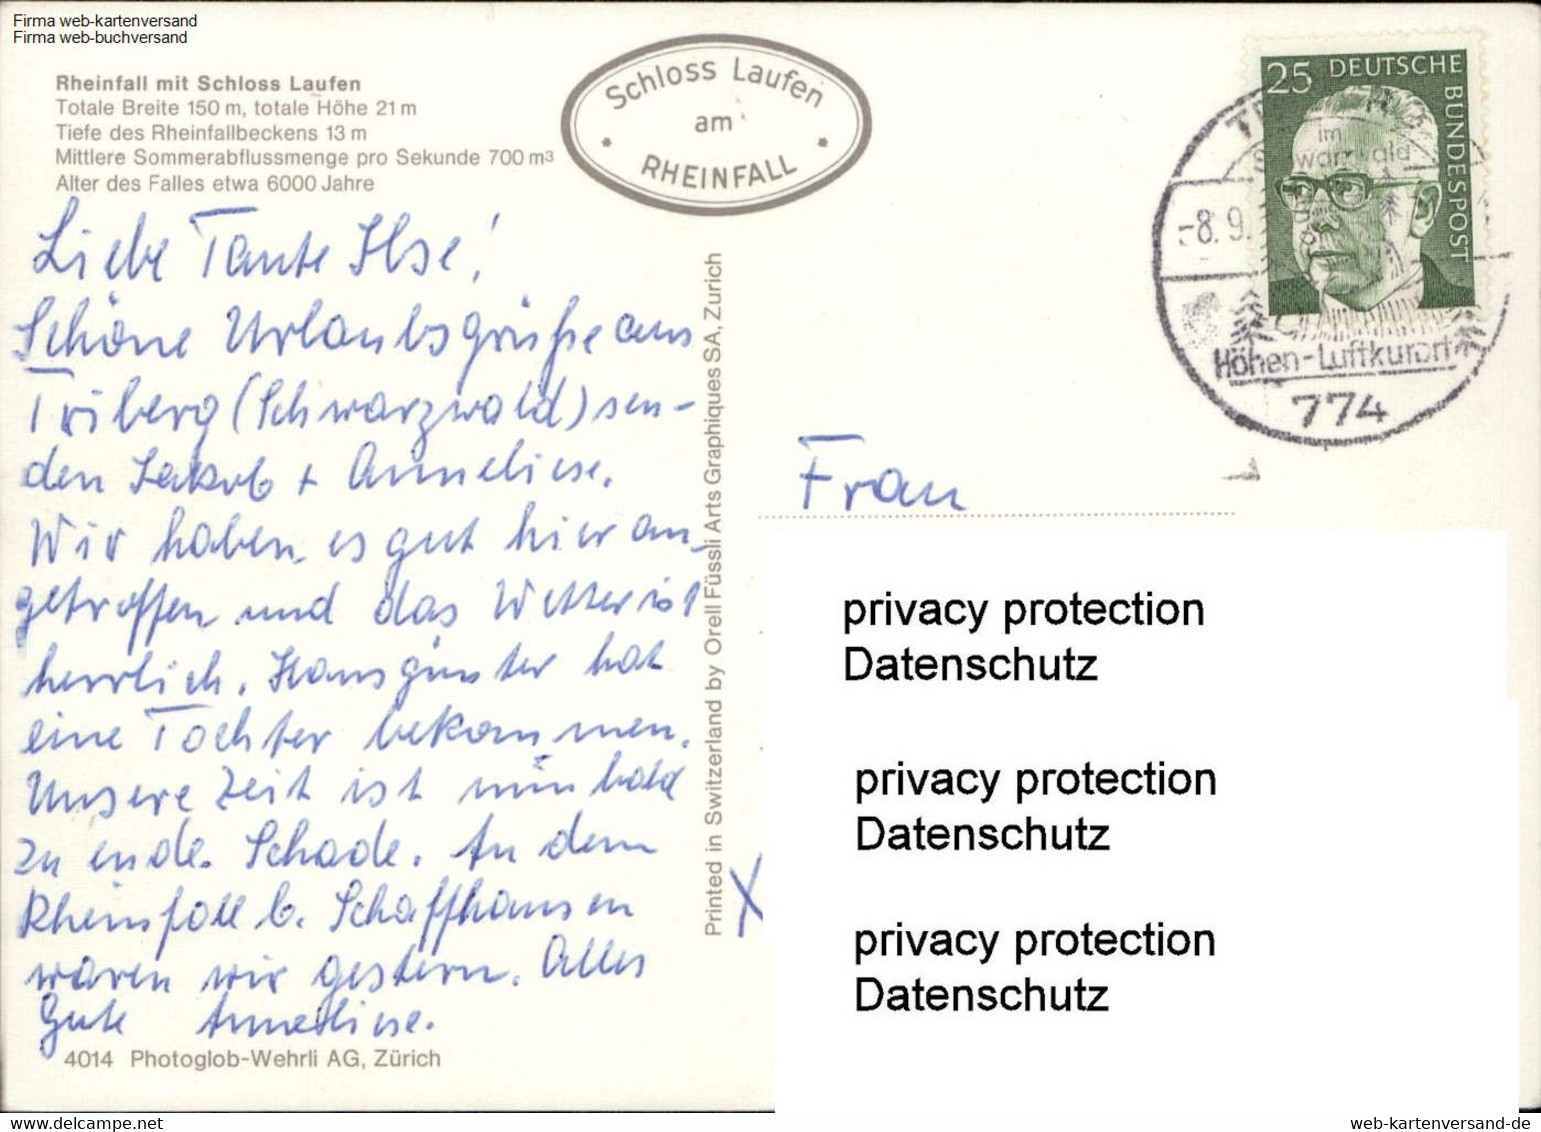 Firma web-kartenversand
Firma web-buchversand
Rheinfall mit Schloss Laufen
Totale Breite 150 m, totale Höhe 21 m
Tiefe des Rheinfallbeckens 13 m
Mittlere Sommerabflussmenge pro Sekunde 700 m³
Alter des Falles etwa 6000 Jahre
Schloss Laufen
am
RHEINFALL
25 DEUTSCHE
BUNDESPOST
im
Schwarzwald
-8.9.
Höhen-Luftkurort
774
Liebe Tante Ilse!
Schöne Urlaubsgrüße aus
Triberg (Schwarzwald) sen-
den Jakob + Anneliese.
Wir haben es gut hier an-
getroffen und das Wetter ist
herrlich. Hansgünter hat
eine Tochter bekommen.
Unsere Zeit ist nun bald
zu ende. Schade. An dem
Rheinfall b. Schaffhausen
waren wir gestern. Alles
Gute Anneliese.
4014 Photoglob-Wehrli AG, Zürich
Printed in Switzerland by Orell Füssli Arts Graphiques SA, Zurich
Frau
X
privacy protection
Datenschutz
privacy protection
Datenschutz
privacy protection
Datenschutz
www.delcampe.net
web-kartenversand-de